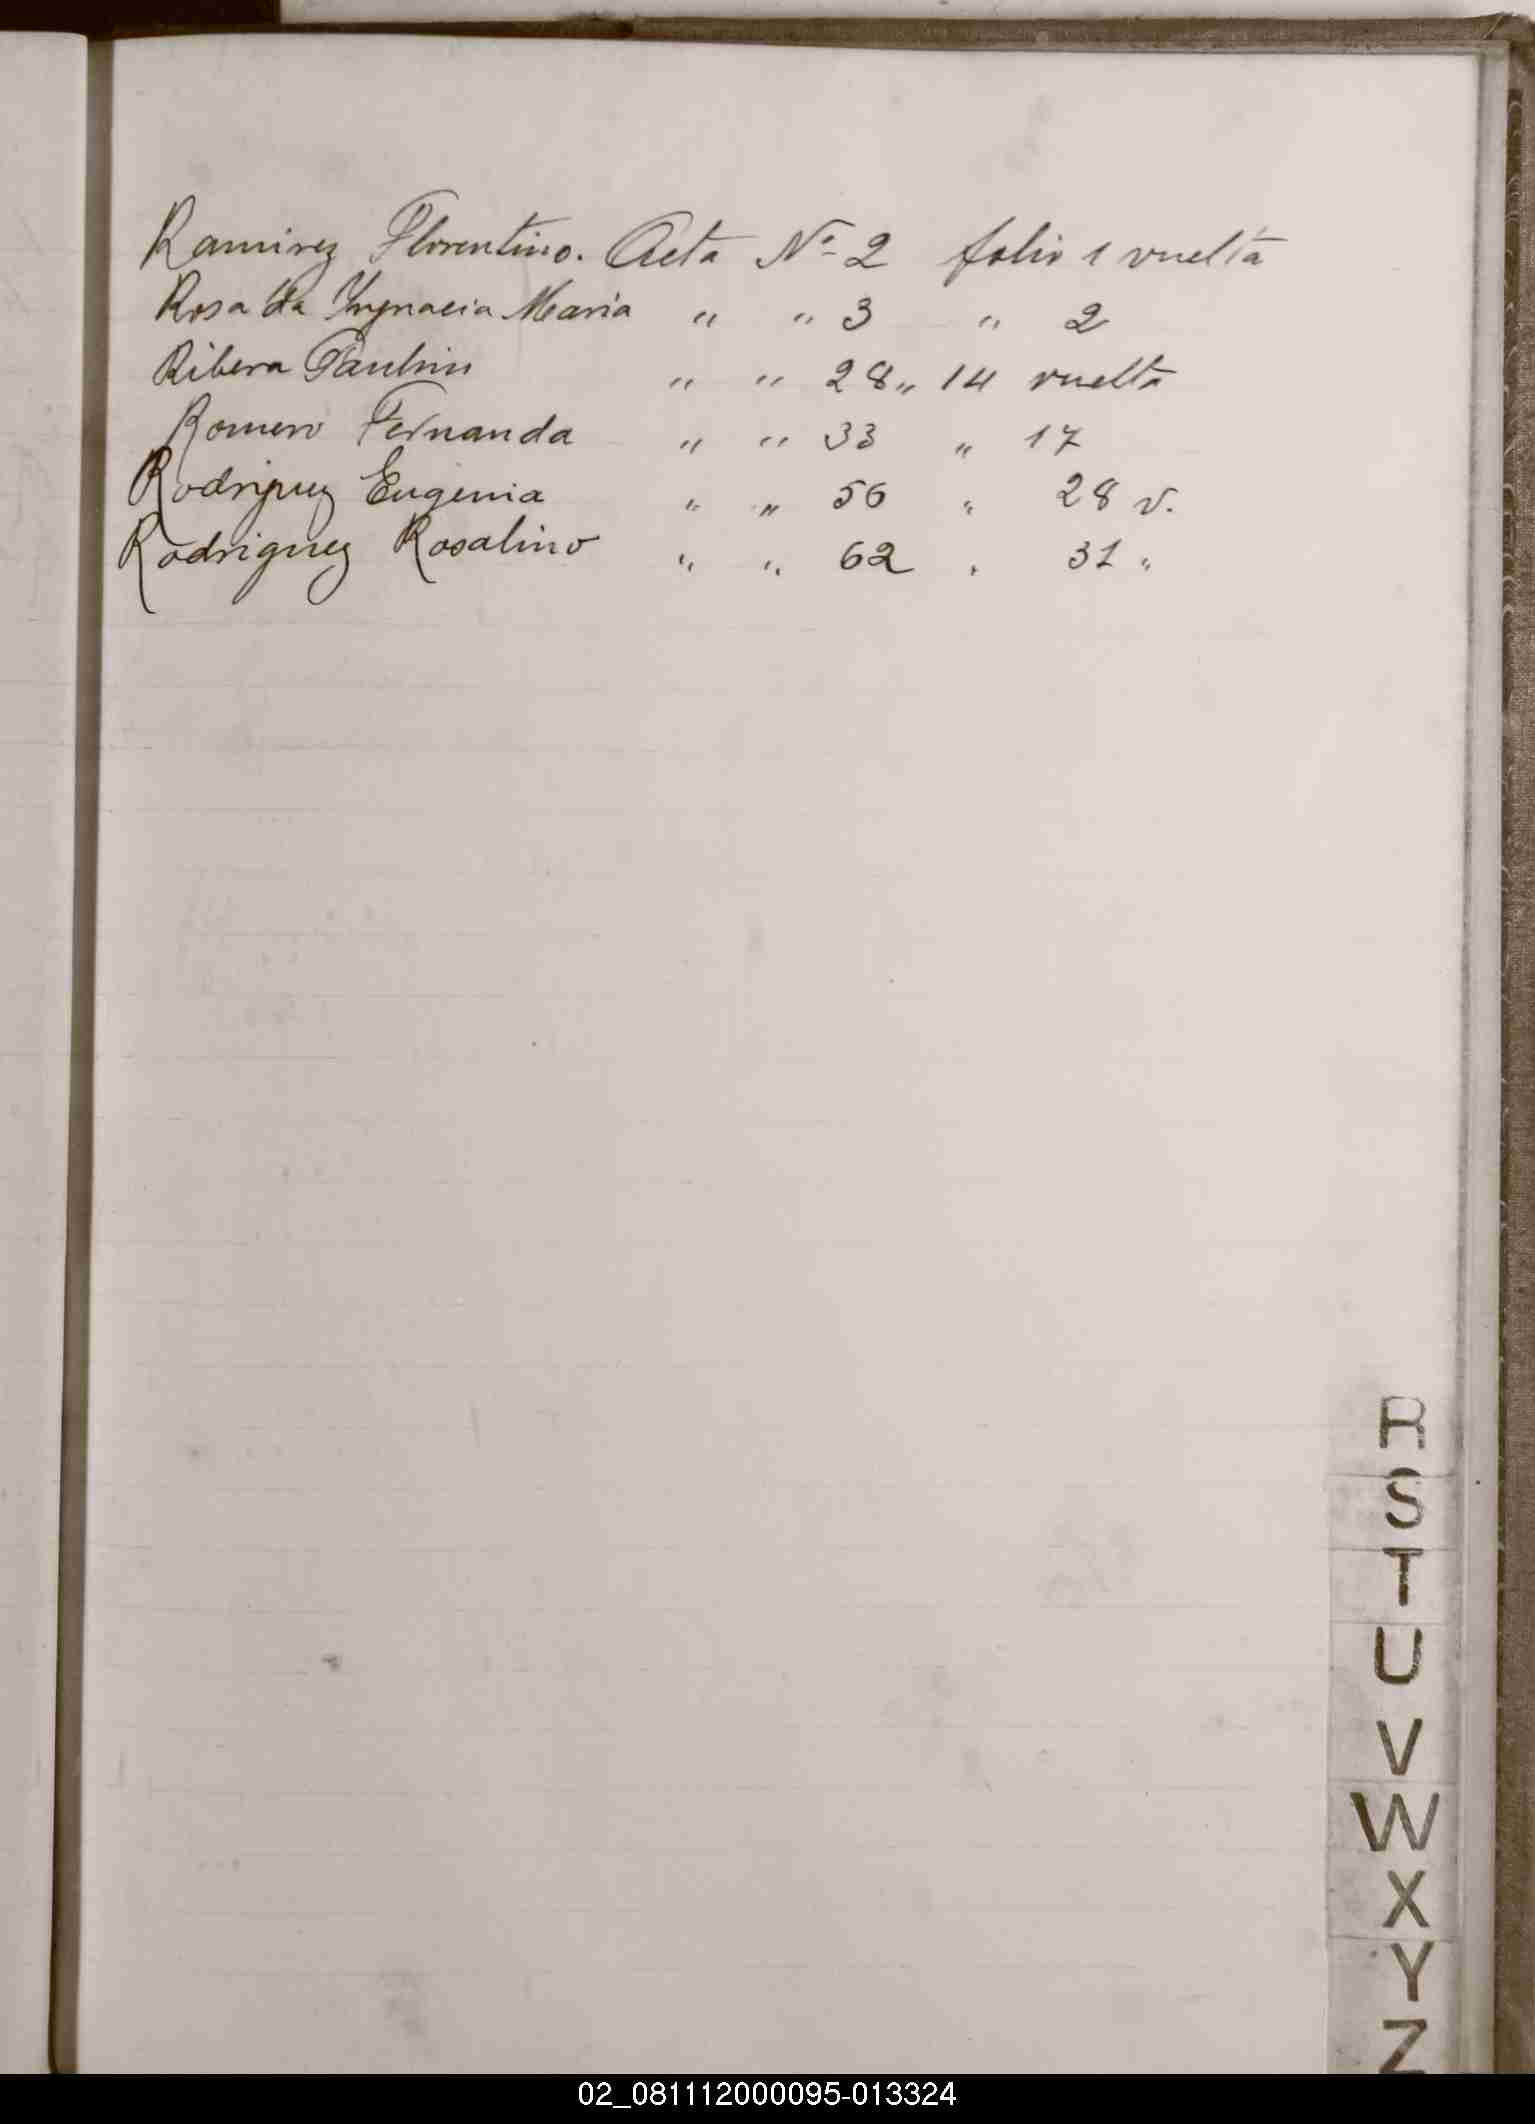 Ramirez Florentino. Acta Nº 2 folio 1 vuelta
Rosa da Ygnacia Maria " " 3 " 2
Ribera Paulino " " 28 " 14 vuelta
Romero Fernanda " " 33 " 17
Rodriguez Eugenia " " 56 " 28 v.
Rodriguez Rosalino " " 62 " 31 "
R
S
T
U
V
W
X
Y
Z
02_081112000095-013324